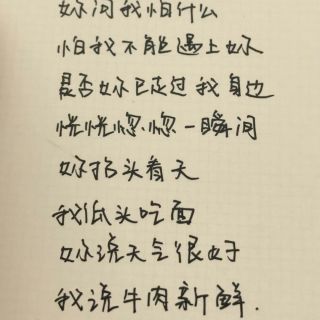 妳问我怕什么
怕我不能遇上妳
是否妳已走过我身边
恍恍惚惚一瞬间
妳抬头看天
我低头吃面
妳说天气很好
我说牛肉新鲜.